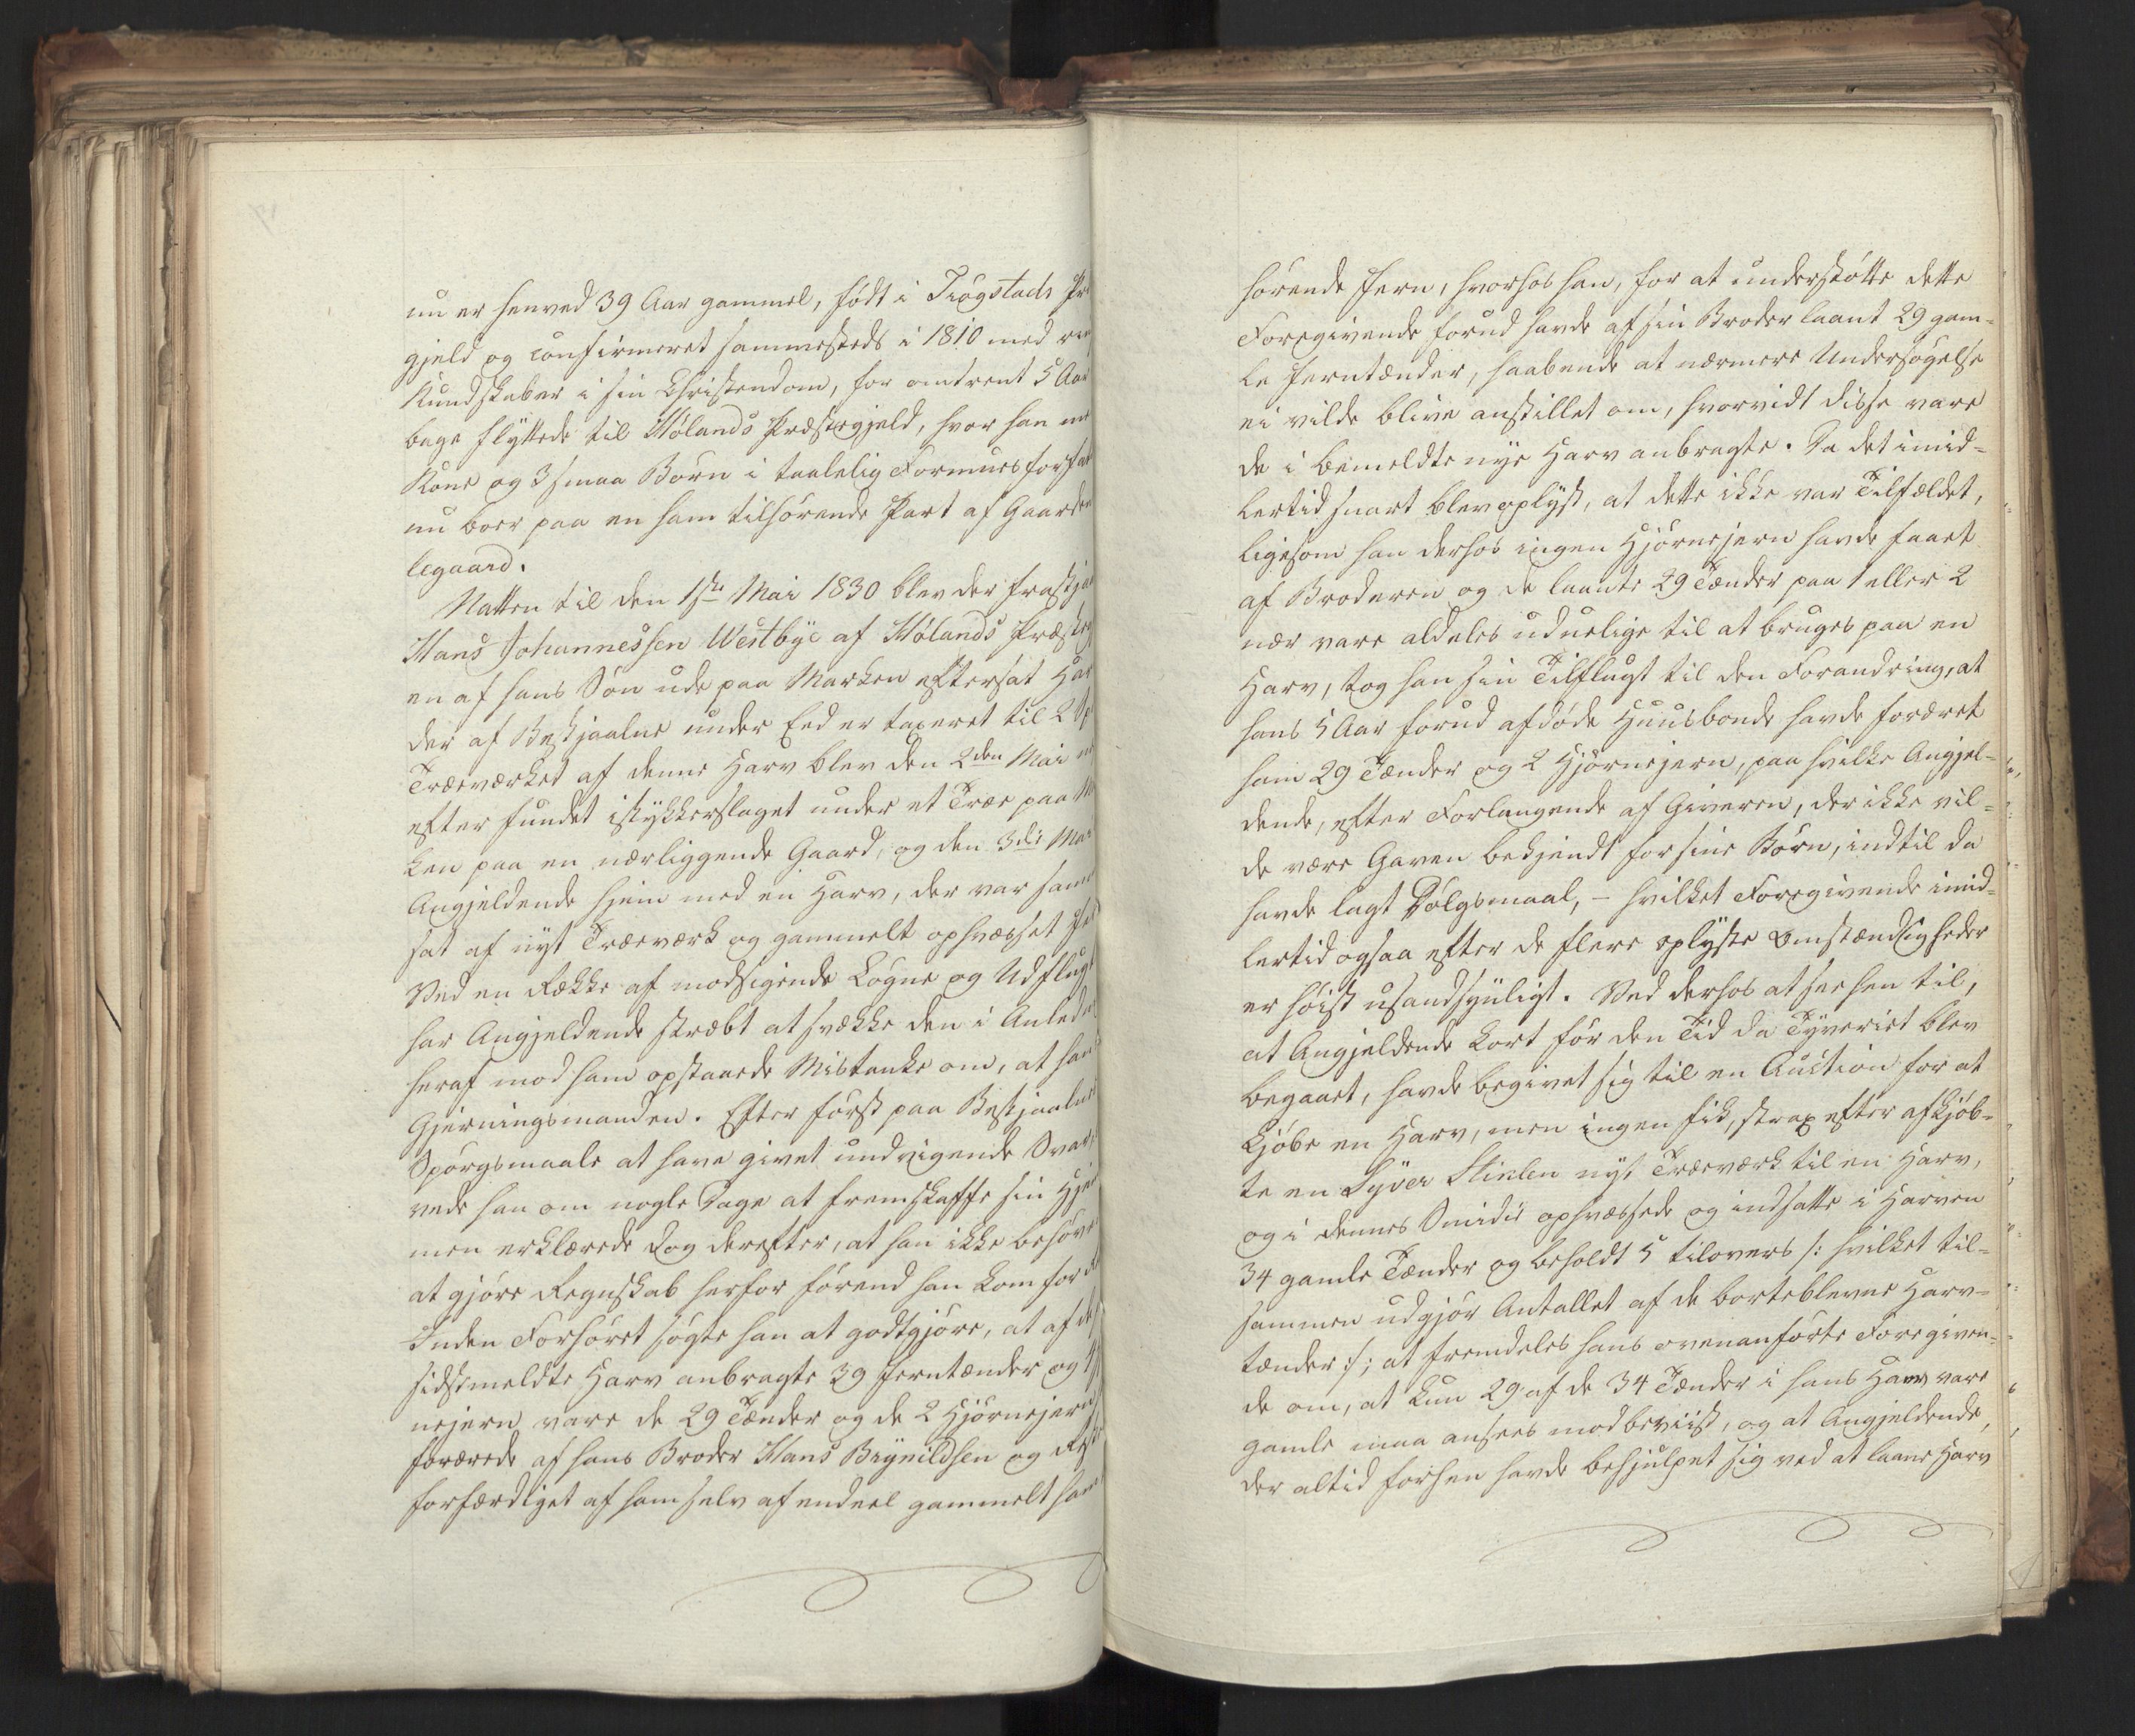 nu er henved 39 Aar gammel, født i Trøgstads Præ
gjeld og confirmeret sammesteds i 1810 med
Kundskaber i sin Christendom, for omtrent 5 Aar
bage flyttede til Hølands Præstegjeld, hvor han
Kone og 3 smaa Børn i taalelig Formuesforfat
nu boer paa en ham tilhørende Part af Gaarden
legaard.
Natten til den 1ste Mai 1830 blev der frastjaa
Hans Johannessen Westbye af Hølands Præsteg
en af hans Søn ude paa Marken eftersat Har
der af Bestjaalne under Eed er taxeret til 2 Sp
Træeværket af denne Harv blev den 2den Mai
efter fundet istykkerslaget under et Træe paa
ken paa en nærliggende Gaard, og den 3die Mai
Angjeldende hjem med en Harv, der var sam
sat af nyt Træeværk og gammelt ophvæsset
Ved en Række af modsigende Løgne og Udflugt
har Angjeldende stræbt at svække den i Anled
heraf mod ham opstaaede Mistanke om, at han
Gjerningsmanden. Efter først paa Bestjaalnes
Spørgsmaale at have givet undvigende Svar,
vede han om nogle Dage at fremskaffe sin Hje
men erklærede dog derefter, at han ikke behøve
at gjøre Regnskab herfor førend han kom for
Inden Forhøret søgte han at godtgjøre, at af de
sidstmeldte Harv anbragte 39 Jerntænder og
nejern vare de 29 Tænder og de 2 Hjørnejern
forærede af hans Broder Hans Brynildsen og Rest
forfærdiget af ham selv af endeel gammelt ham
hørende Jern, hvorhos han, for at understøtte dette
Foregivende forud havde af sin Broder laant 29 gam-
le Jerntænder, haabende at nærmere Undersøgelse
ei vilde blive anstillet om, hvorvidt disse vare
de i bemeldte nye Harv anbragte. Da det imid-
lertid snart blev oplyst, at dette ikke var Tilfældet,
ligesom han derhos ingen Hjørnejern havde faaet
af Broderen og de laante 29 Tænder paa 1 eller 2
nær vare aldeles uduelige til at bruges paa en
Harv, tog han sin Tilflugt til den Forandring, at
hans 5 Aar forud afdøde Huusbonde havde foræret
ham 29 Tænder og 2 Hjørnejern, paa hvilke Angjel-
dende, efter Forlangende af Giveren, der ikke vil-
de være Gaven bekjendt for sine Børn, indtil da
havde lagt Dølgsmaal, - hvilket Foregivende imid-
lertid ogsaa efter de flere oplyste Omstændigheder
er høist usandsynligt. Ved derhos at see hen til,
at Angjeldende kort før den Tid da Tyveriet blev
begaaet, havde begivet sig til en Auction for at
kjøbe en Harv, men ingen fik, strax efter afkjøb-
te en Syver nyt Træeværk til en Harv,
og i dennes Smidie ophvæssede og indsatte i Harven
34 gamle Tænder og beholdt 5 tilovers /: hvilket til-
sammen udgjør Antallet af de borteblevne Harv-
tænder :/; at fremdeles hans ovenanførte Foregiven-
de om, at kun 29 af de 34 Tænder i hans Harv vare
gamle maa ansees modbeviist, og at Angjeldende,
der altid forhen havde behjulpet sig ved at laane Harv